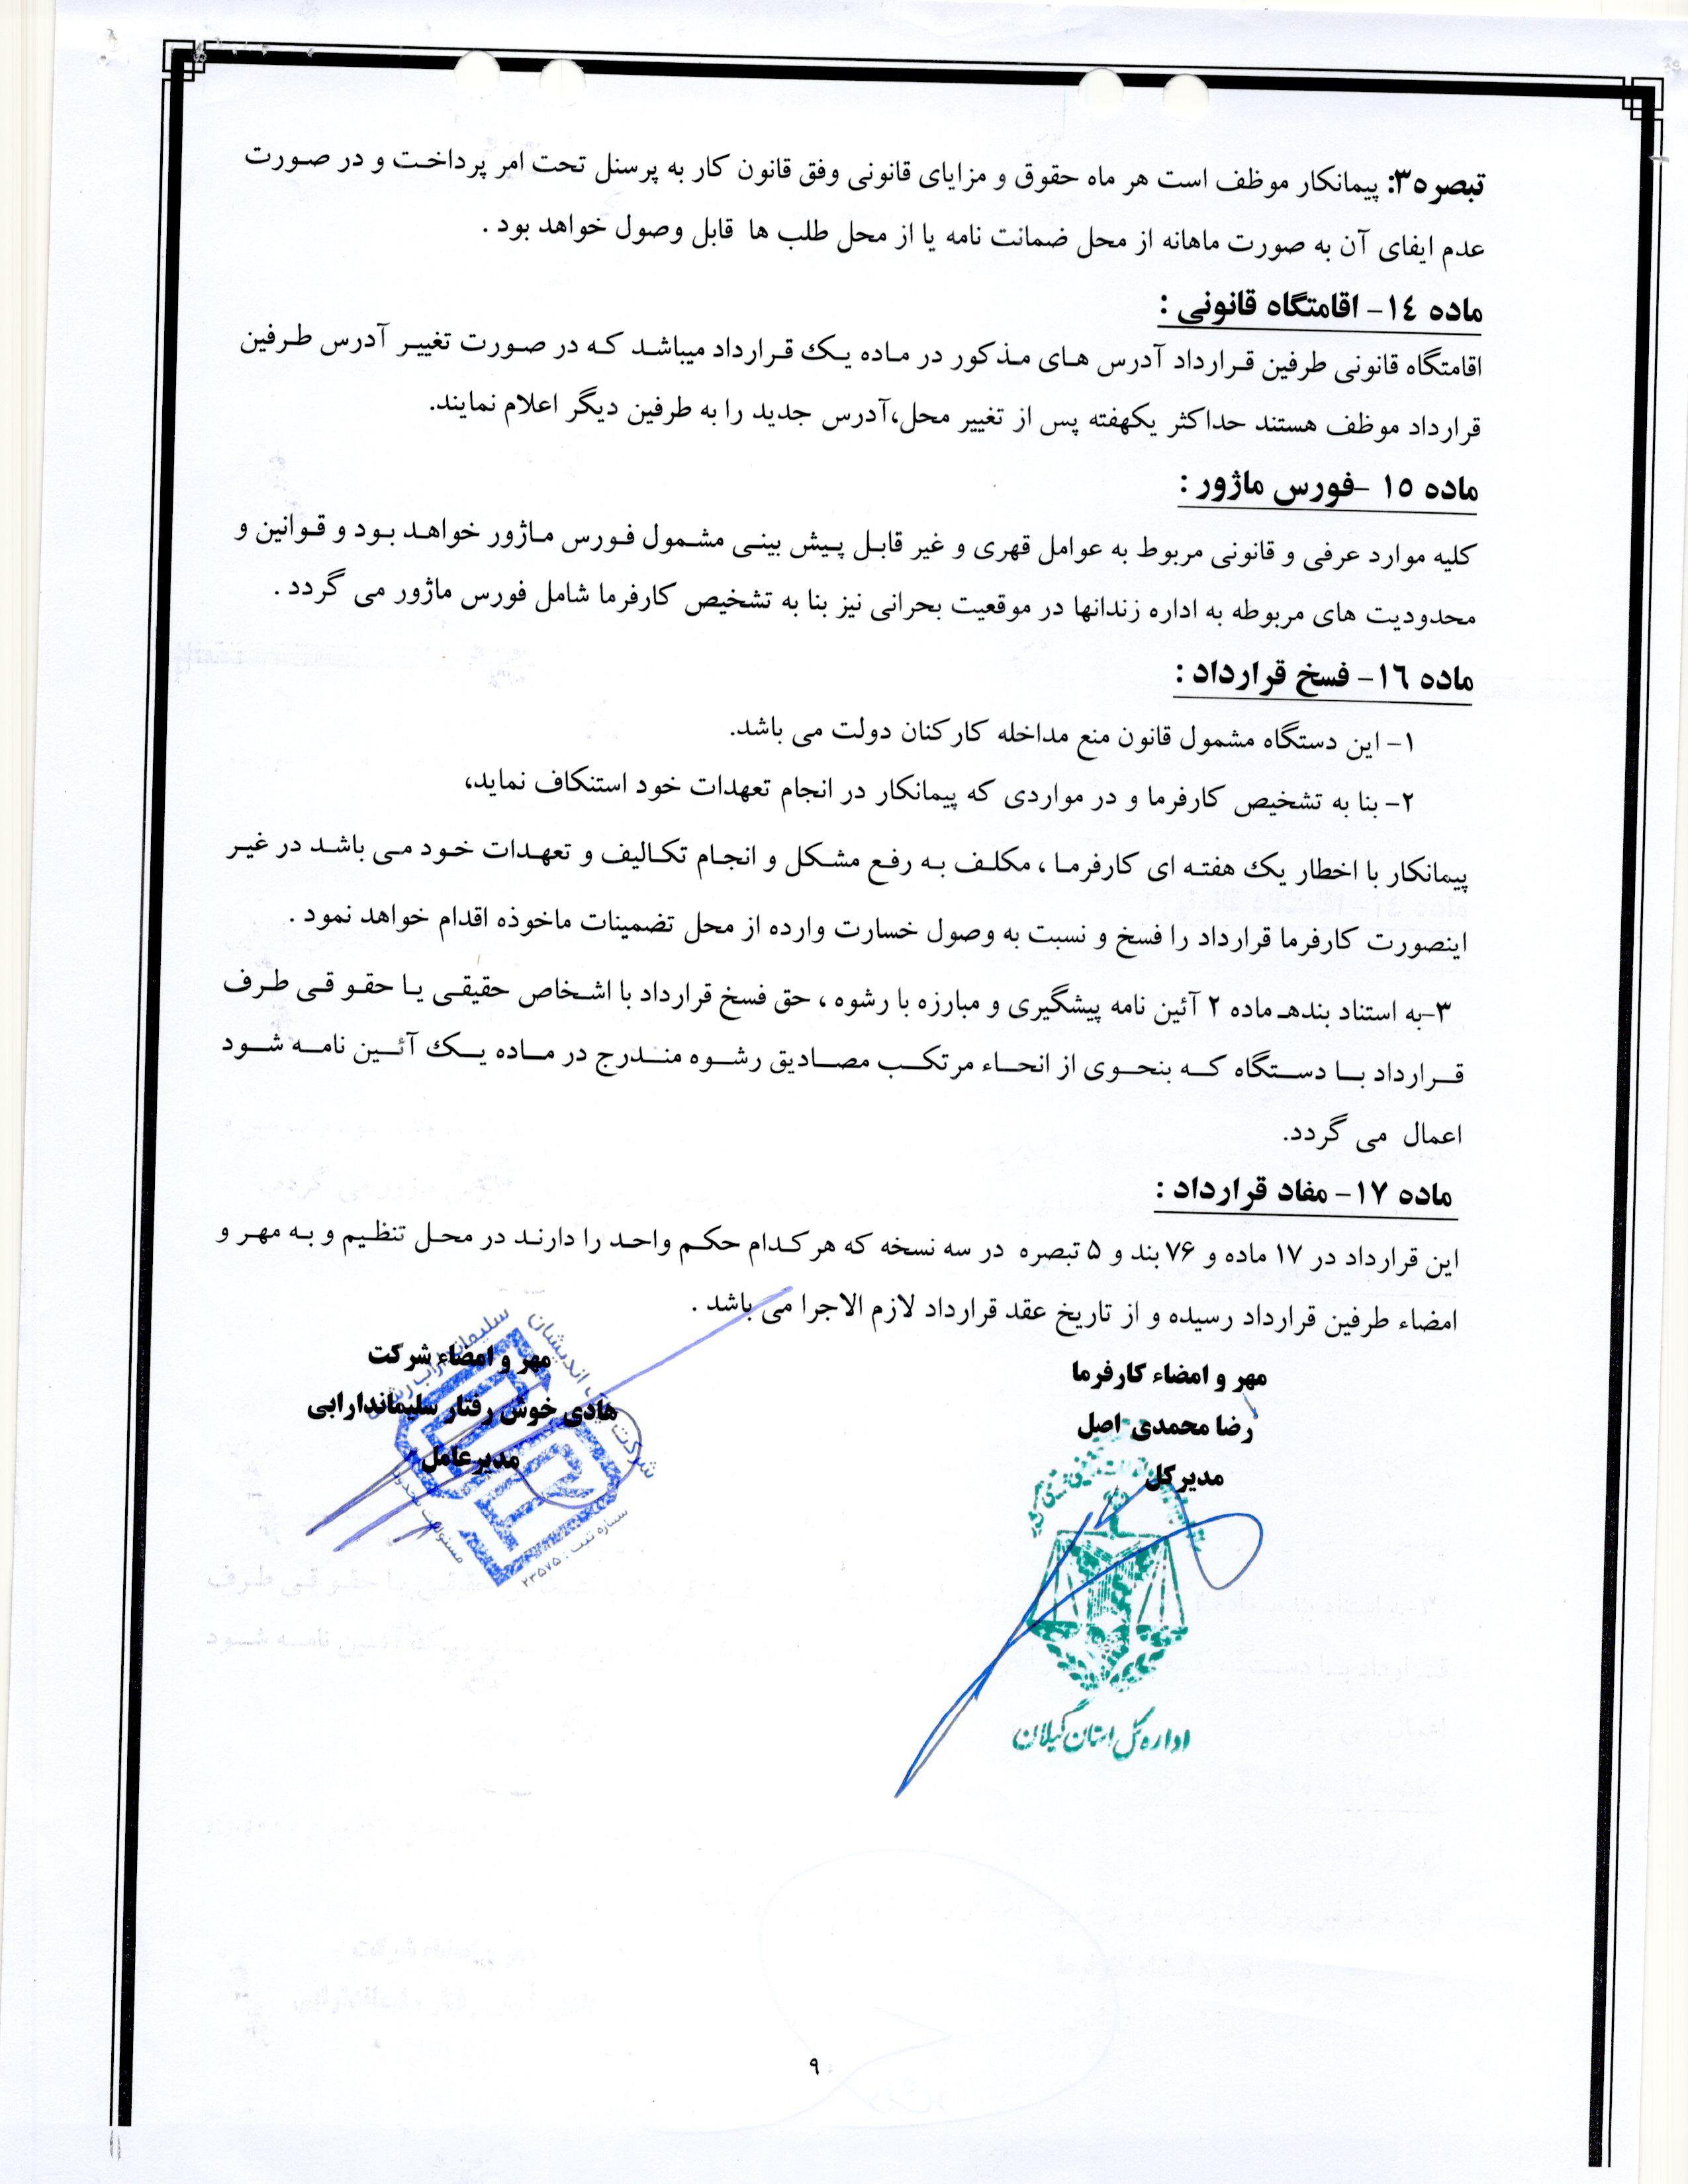 تبصره۳: پیمانکار موظف است هر ماه حقوق و مزایای قانونی وفق قانون کار به پرسنل تحت امر پرداخت و در صورت
عدم ایفای آن به صورت ماهانه از محل ضمانت نامه یا از محل طلب ها قابل وصول خواهد بود .
ماده ۱٤– اقامتگاه قانونی :
اقامتگاه قانونی طرفین قرارداد آدرس های مذکور در ماده یک قرارداد میباشد که در صورت تغییر آدرس طرفین
قرارداد موظف هستند حداکثر یکهفته پس از تغییر محل،آدرس جدید را به طرفین دیگر اعلام نمایند.
ماده ۱٥ –فورس ماژور :
کلیه موارد عرفی و قانونی مربوط به عوامل قهری و غیر قابل پیش بینی مشمول فورس ماژور خواهد بود و قوانین و
محدودیت های مربوطه به اداره زندانها در موقعیت بحرانی نیز بنا به تشخیص کارفرما شامل فورس ماژور می گردد .
ماده ۱٦– فسخ قرارداد :
۱– این دستگاه مشمول قانون منع مداخله کارکنان دولت می باشد.
۲– بنا به تشخیص کارفرما و در مواردی که پیمانکار در انجام تعهدات خود استنکاف نماید،
پیمانکار با اخطار یک هفته ای کارفرما ، مکلف به رفع مشکل و انجام تکالیف و تعهدات خود می باشد در غیر
اینصورت کارفرما قرارداد را فسخ و نسبت به وصول خسارت وارده از محل تضمینات ماخوذه اقدام خواهد نمود .
۳–به استناد بندهـ ماده ۲ آئین نامه پیشگیری و مبارزه با رشوه ، حق فسخ قرارداد با اشخاص حقیقی یا حقو قی طرف
قرارداد با دستگاه که بنحوی از انحاء مرتکب مصادیق رشوه مندرج در ماده یک آئین نامه شود
اعمال می گردد.
ماده ۱۷– مفاد قرارداد :
این قرارداد در ۱۷ ماده و ۷۶ بند و ۵ تبصره در سه نسخه که هرکدام حکم واحد را دارند در محل تنظیم و به مهر و
امضاء طرفین قرارداد رسیده و از تاریخ عقد قرارداد لازم الاجرا می باشد .
مهر و امضاء کارفرما
رضا محمدی اصل
مدیرکل
اداره کل استان گیلان
مهر و امضاء شرکت
هادی خوش رفتار سلیماندارابی
مدیرعامل
شرکت اندیشان سلیمانداراب
مسئولیت محدود
شماره ثبت : ۲۳۵۷۵
۹